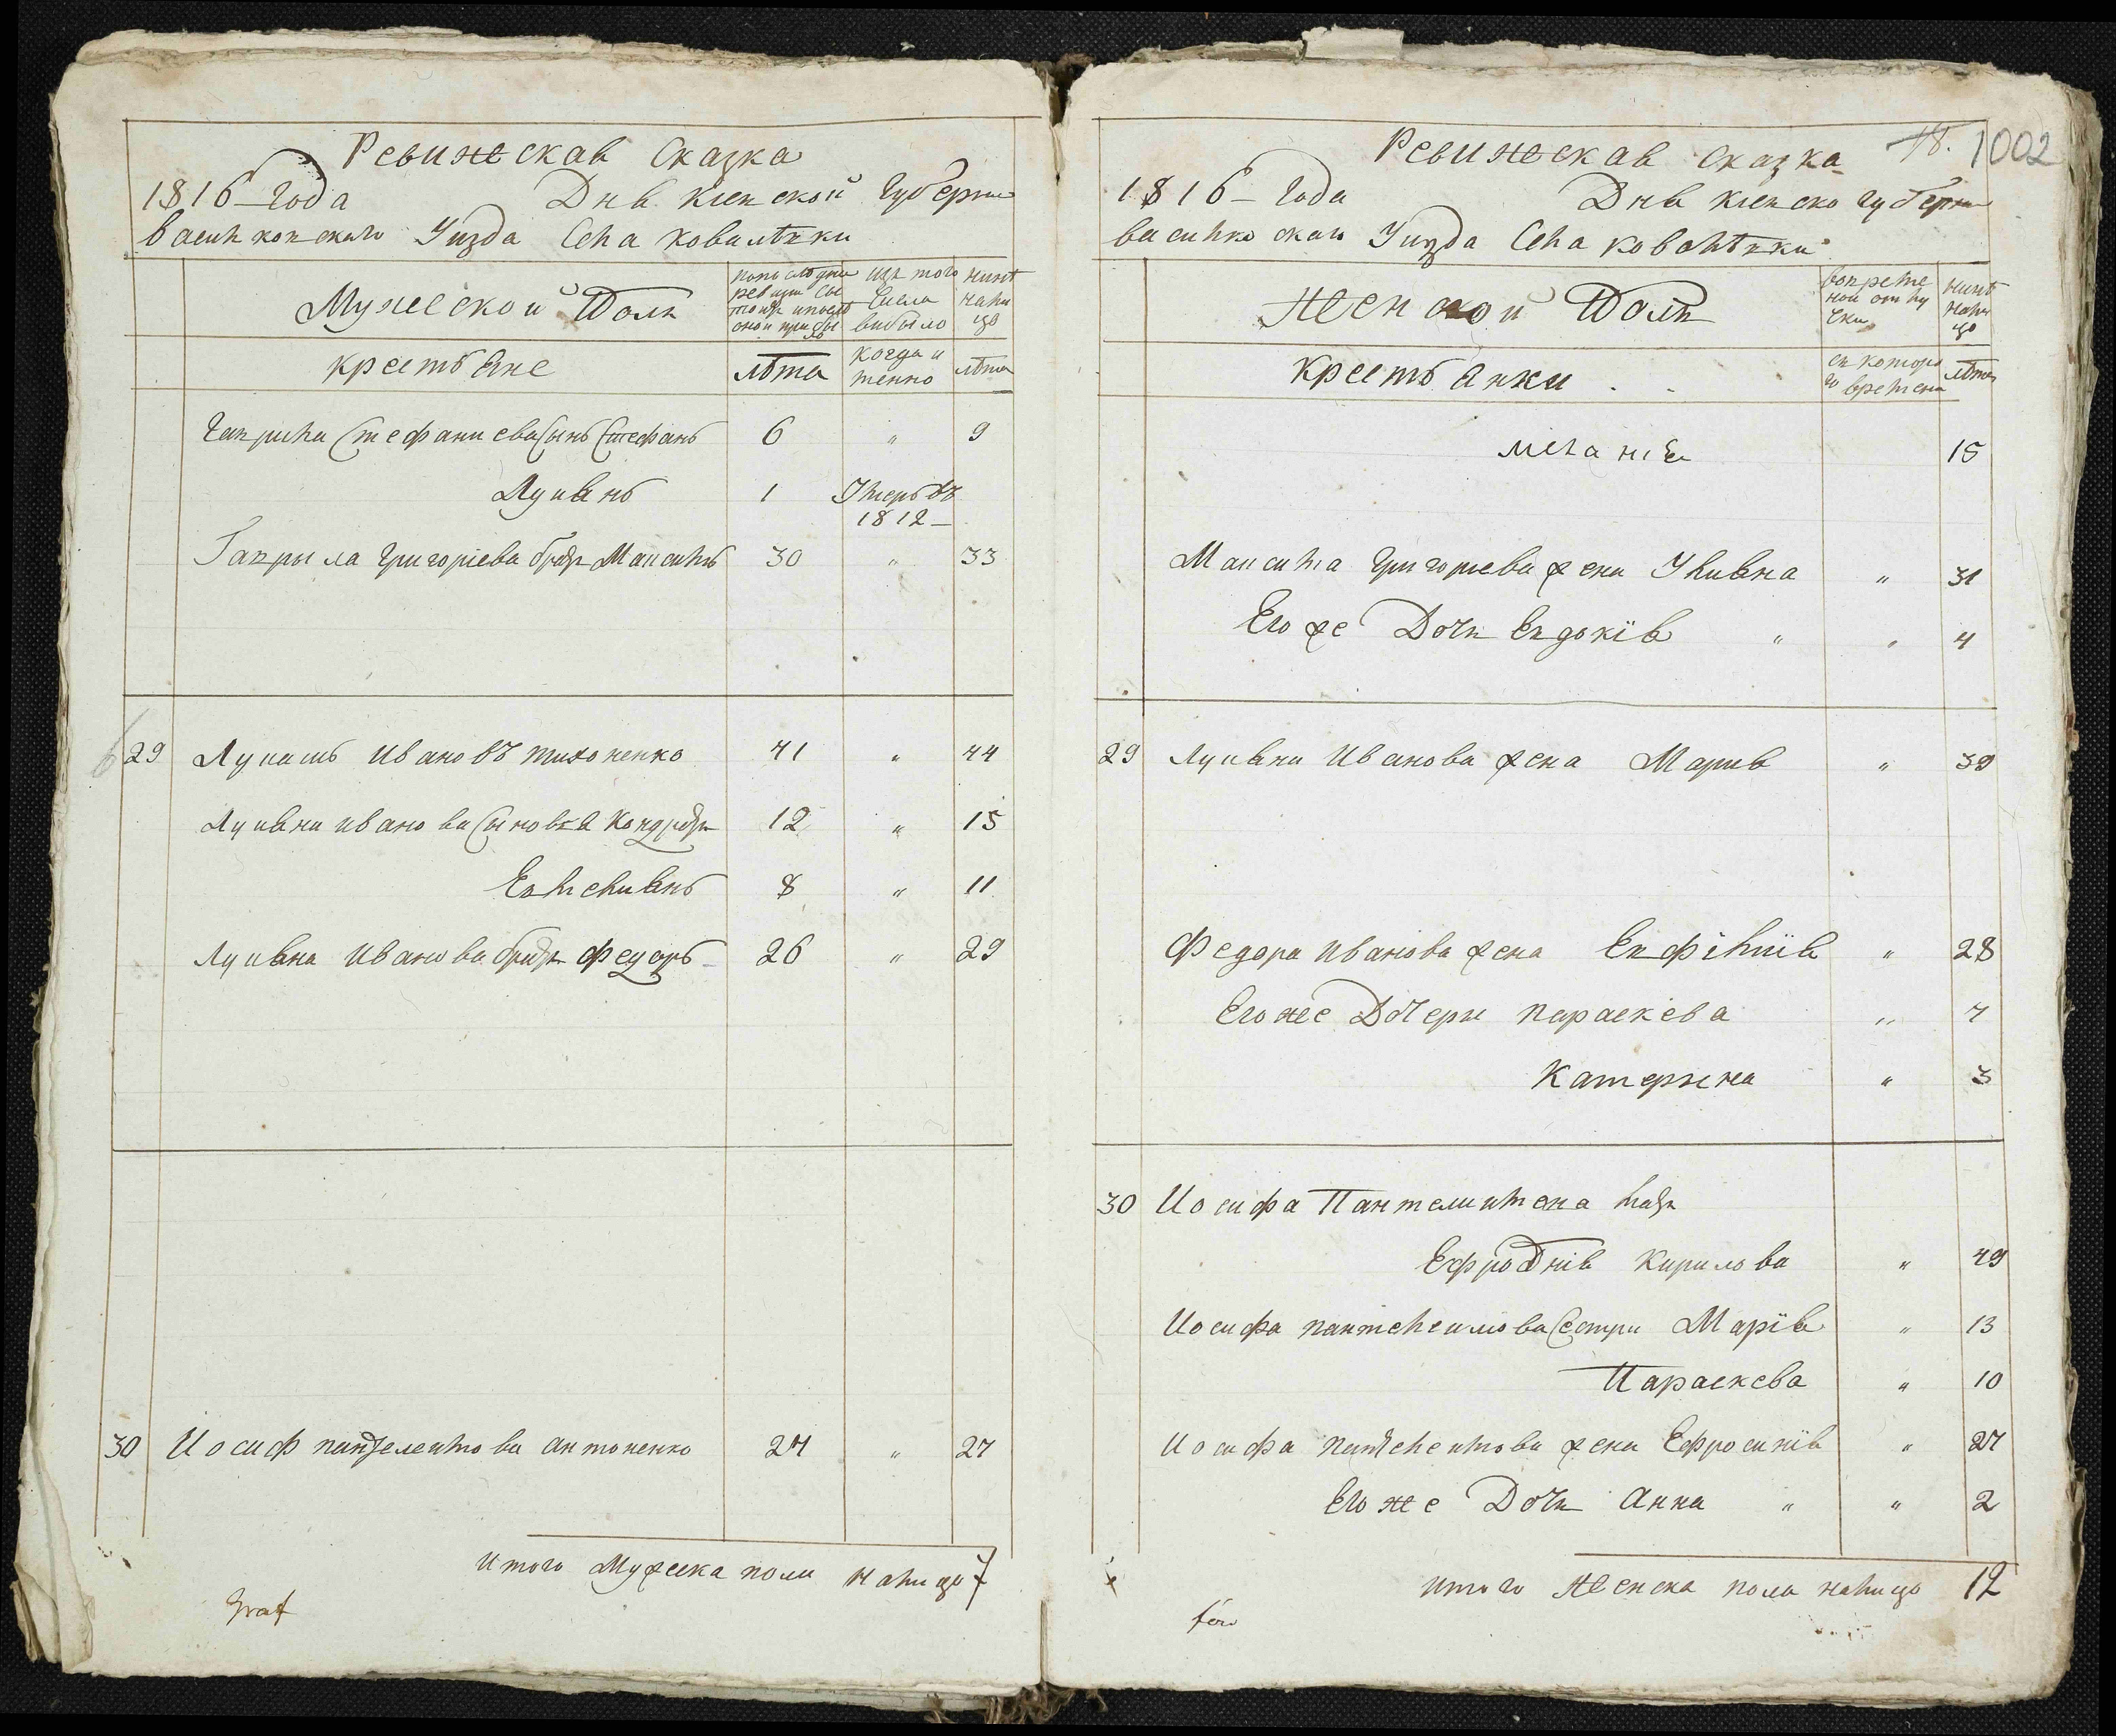 Ревижская Сказка
1816 года Дня Киевской Губернии
Васильковскаго Уизда Села Ковалѣвки
Мужеской Полъ
попослѣдни ревизи состояло и после оной прибы ло
изъ того числа выбыло
нинѣ налицо
крестьяне
лѣта
когда именно
лѣта
Гаврила Стефаниева Сынъ Стефанъ 6 " 9
Лукянъ 1 Умеръ въ 1812
Гаврыла Григоріева братъ Максимъ 30 " 33
29 Лукашъ Ивановъ Тихоненко 41 " 44
Лукяна Иванова Сыновья Кондратъ 12 " 15
Евмениянъ 8 " 11
Лукяна Иванова братъ Федоръ 26 " 29
30 Иосиф пантелеимова антоненко 24 " 27
итого Мужеска пола налицо 7
Graf
Ревижская Сказка
18. 1002
1816 Года Дня Киевско губерни
Василковскаго Уизда Села Коволѣвки
Женской Полъ
вовремениой отлучки
нинѣ налицо
Крестьянки
съ котораго времени
лѣта
Меланія 15
Максима Григориева жена Улияна " 31
Его же Дочь Евдокія " " 4
29 Лукяна Иванова жена Мария " 39
Федора Иванова жена Евфімія " 28
Его же Дочери параскева " 7
Катерина " 3
30 Иосифа Пантелиимона мать
Ефросинія Кирилова " 49
Иосифа пантелеимова Сестри Марія " 13
Параскева " 10
Иосифа пантелеимова жена Ефросинія " 27
Его же Дочь Анна " " 2
итого Женска пола налицо 12